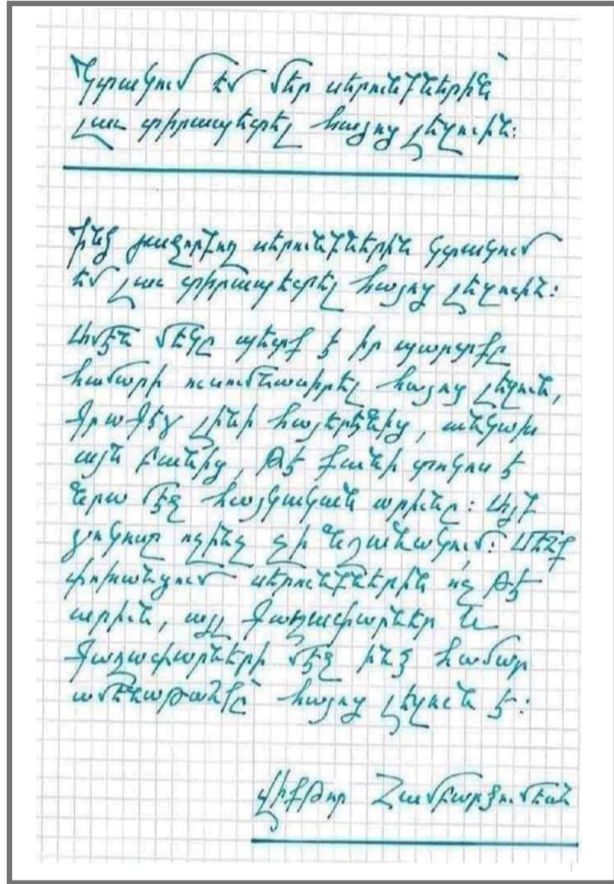 Կտակում եմ մեր սերունդներին՝
լավ տիրապետել հայոց լեզուին:
Ինձ յաջորդող սերունդներին կտակում
եմ լաւ տիրապետել հայոց լեզուին:
Ամէն մէկը պէտք է իր պարտքը
համարի ուսումնասիրել հայոց լեզուն,
գրագէտ լինի հայերէնից, անկախ
այն բանից, թէ քանի տոկոս է
նրա մէջ հայկական արիւնը: Այդ
տոկոսը ոչինչ չի նշանակում: Մենք
փոխանցում սերունդներին ոչ թէ
արիւն, այլ գաղափարներ եւ
գաղափարների մէջ ինձ համար
ամենաթանկը՝ հայոց լեզուն է:
Վիքթոր Համբարձումեան